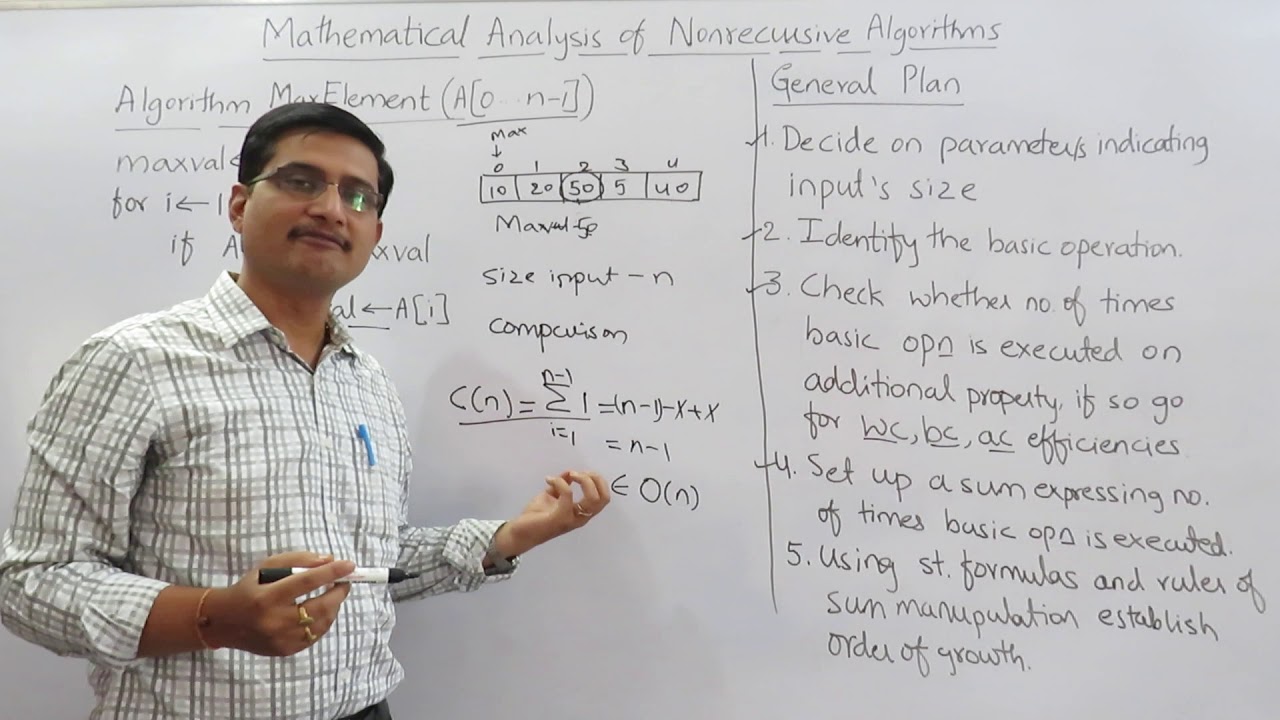 Mathematical Analysis of Nonrecursive Algorithms
Algorithm MaxElement (A[0...n-1])
maxval←
for i←1
if A xval
al←A[i]
Max
↓
0 1 2 3 4
10 20 50 5 40
Maxval-50
size input - n
comparison
C(n) = Σ 1 = (n-1)-1+1
n-1
i=1
= n-1
∈ O(n)
General Plan
1. Decide on parameter/s indicating
input's size
2. Identify the basic operation.
3. Check whether no. of times
basic opn is executed on
additional property, if so go
for wc, bc, ac efficiencies.
4. Set up a sum expressing no.
of times basic opn is executed.
5. Using st. formulas and rules of
sum manupulation establish
order of growth.